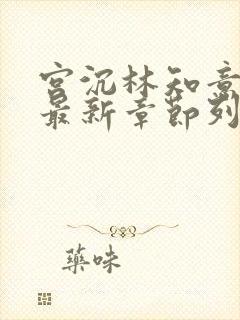 宫沉林知意
最新章节列
藥味